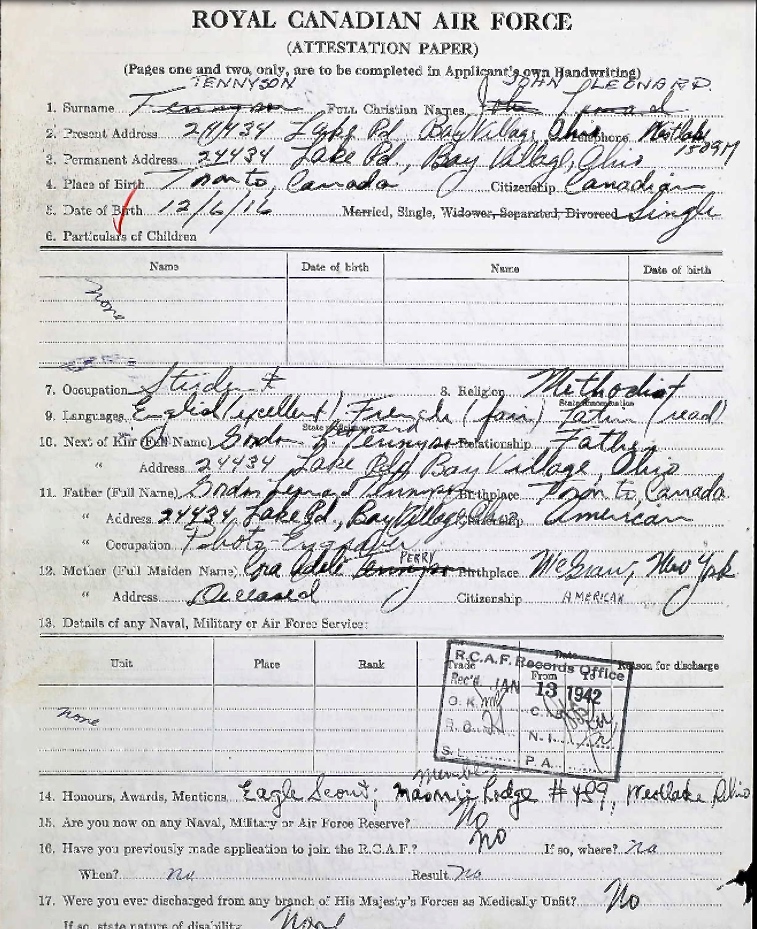 ROYAL CANADIAN AIR FORCE
(ATTESTATION PAPER)
(Pages one and two, only, are to be completed in Applicant's own Handwriting)
TENNYSON JOHN LEONARD
1. Surname Tennyson Full Christian Names John Leonard
2. Present Address 24434 Lake Rd Bay Village, Ohio Telephone Westlake 1509M
3. Permanent Address 24434 Lake Rd, Bay Village, Ohio
4. Place of Birth Toronto, Canada Citizenship Canadian
5. Date of Birth 12/6/16 Married, Single, Widower, Separated, Divorced Single
6. Particulars of Children
Name Date of birth Name Date of birth
None
7. Occupation Student 8. Religion Methodist
State denomination
9. Languages English (excellent) French (fair) Latin (read)
State proficiency
10. Next of Kin (Full Name) Gordon Leonard Tennyson Relationship Father
" Address 24434 Lake Rd Bay Village, Ohio
11. Father (Full Name) Gordon Leonard Tennyson Birthplace Toronto, Canada
" Address 24434 Lake Rd, Bay Village Ohio Citizenship American
" Occupation Photo-Engraver
12. Mother (Full Maiden Name) Ora Adele Tennyson PERRY Birthplace McGraw, New York
" Address Deceased Citizenship AMERICAN
13. Details of any Naval, Military or Air Force Service:
Unit Place Rank Trade Date From Reason for discharge
none
R.C.A.F. Records Office
Rec'd. JAN 13 1942
O.R. C.
R.O. N.I.
S.L. P.A.
14. Honours, Awards, Mentions Eagle Scout; Member Masonic Lodge #459, Westlake, Ohio
15. Are you now on any Naval, Military or Air Force Reserve? No
16. Have you previously made application to join the R.C.A.F.? No If so, where? na
When? na Result na
17. Were you ever discharged from any branch of His Majesty's Forces as Medically Unfit? No
If so, state nature of disability. None